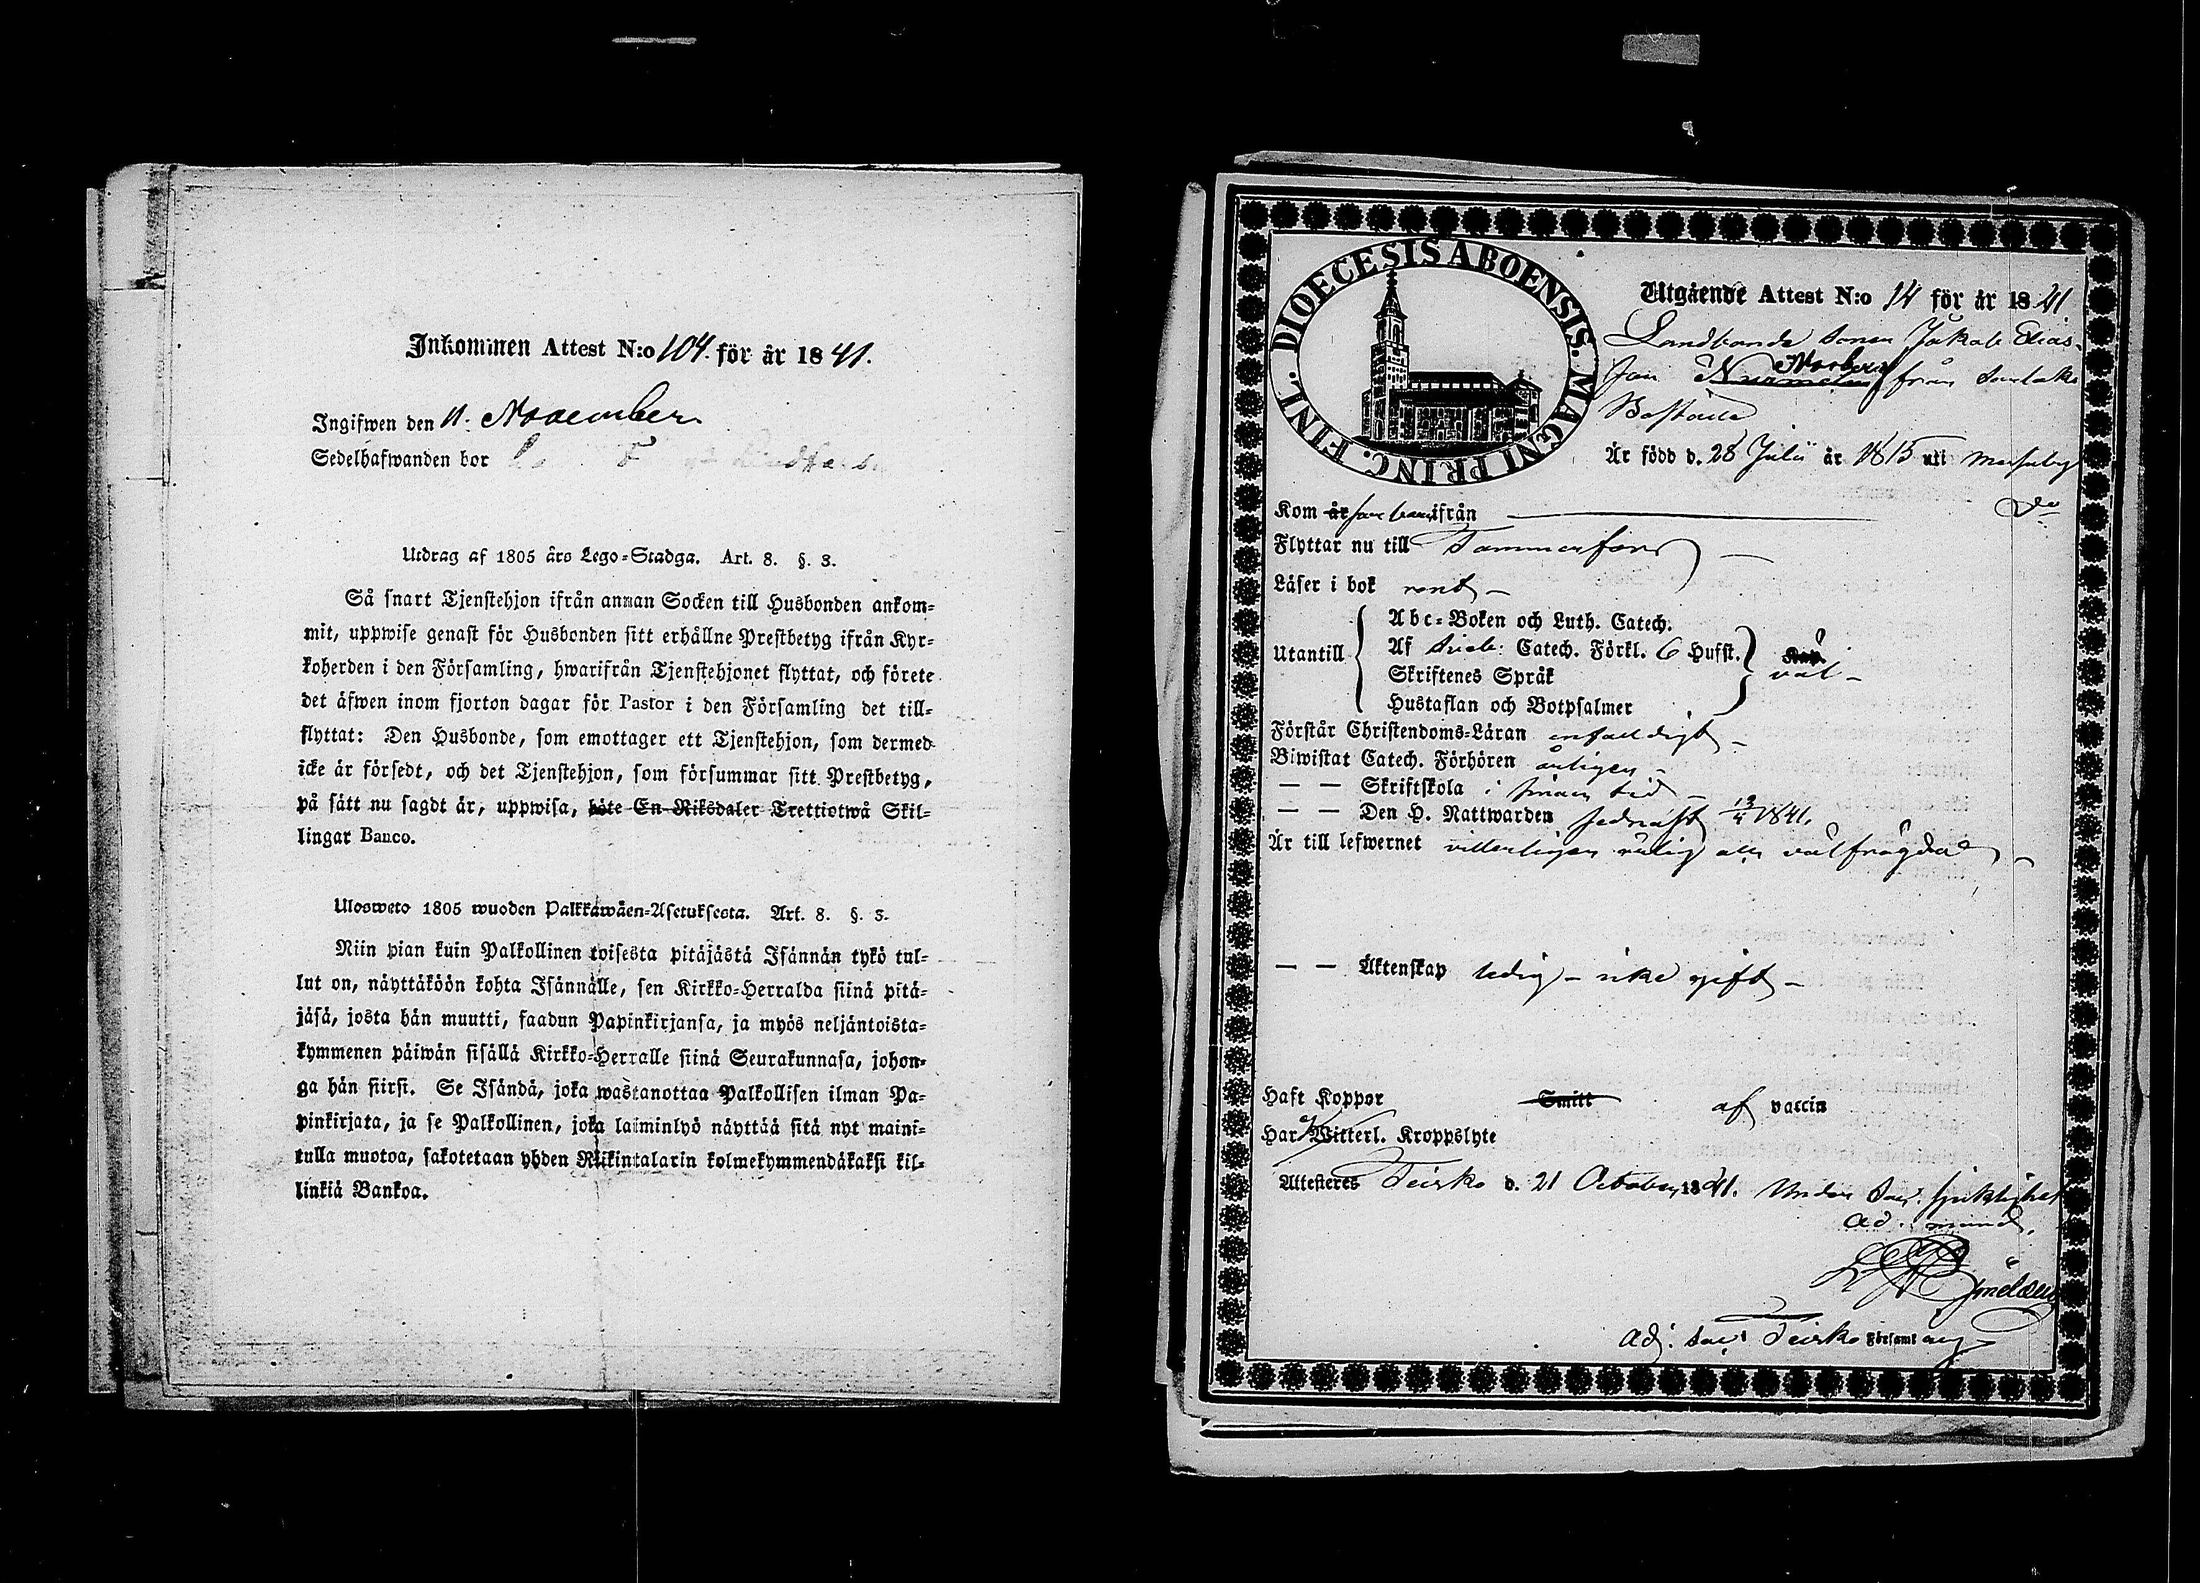 Inkommen Attest N:o 104. för år 1841.
Ingifwen den 11. November
Sedelhafwanden bor
Utdrag af 1805 års Lego-Stadga. Art. 8. §. 3.
Så snart Tjenstehjon ifrån annan Socken till Husbonden ankom-
mit, uppwise genast för Husbonden sitt erhållne Prestbetyg ifrån Kyr-
koherden i den Församling, hwarifrån Tjenstehjonet flyttat, och förete
det äfwen inom fjorton dagar för Pastor i den Församling det till-
flyttat: Den Husbonde, som emottager ett Tjenstehjon, som dermed
icke är försedt, och det Tjenstehjon, som försummar sitt Prestbetyg,
på sätt nu sagdt är, uppwisa, böte En Riksdaler Trettiotwå Skil-
lingar Banco.
Ulosweto 1805 wuoden Palkkawäen-Asetuksesta. Art. 8. §. 3.
Niin pian kuin Palkollinen toisesta pitäjästä Isännän tykö tul-
lut on, näyttäköön kohta Isännälle, sen Kirkko-Herralda siinä pitä-
jäsä, josta hän muutti, saadun Papinkirjansa, ja myös neljäntoista-
kymmenen päiwän sisällä Kirkko-Herralle siinä Seurakunnasa, johon-
ga hän siirsi. Se Isändä, joka wastanottaa Palkollisen ilman Pa-
pinkirjata, ja se Palkollinen, joka laiminlyö näyttää sitä nyt maini-
tulla muotoa, sakotetaan yhden Riikintalarin kolmekymmendäkaksi kil-
linkiä Bankoa.
DIOECESIS ABOENSIS. MAGNI PRINC. FINL.
Utgående Attest N:o 14 för år 1841.
Landbonde sonen Jakob Elias-
son Nurmelin Norberg från
Är född d. 28 Julii år 1815 uti
Kom år ifrån
Flyttar nu till Tammerfors
Läser i bok rent
Abc-Boken och Luth. Catech.
Utantill Af Sveb: Catech. Förkl. 6 Hufst.
väl
Skriftenes Språk
Hustaflan och Botpsalmer
Förstår Christendoms-Läran enfaldigt
Biwistat Catech. Förhören årligen
— — Skriftskola i sinom tid
— — Den H. Nattwarden sednast 1841.
Är till lefwernet vitterligen ärlig och välfrägdad
— — Äktenskap ledig – icke gift
Haft Koppor Smitt af vaccin
Har Witterl. Kroppslyte
Attesteras Teisko d. 21 October 1841. Under
Adj. Teisko Församl